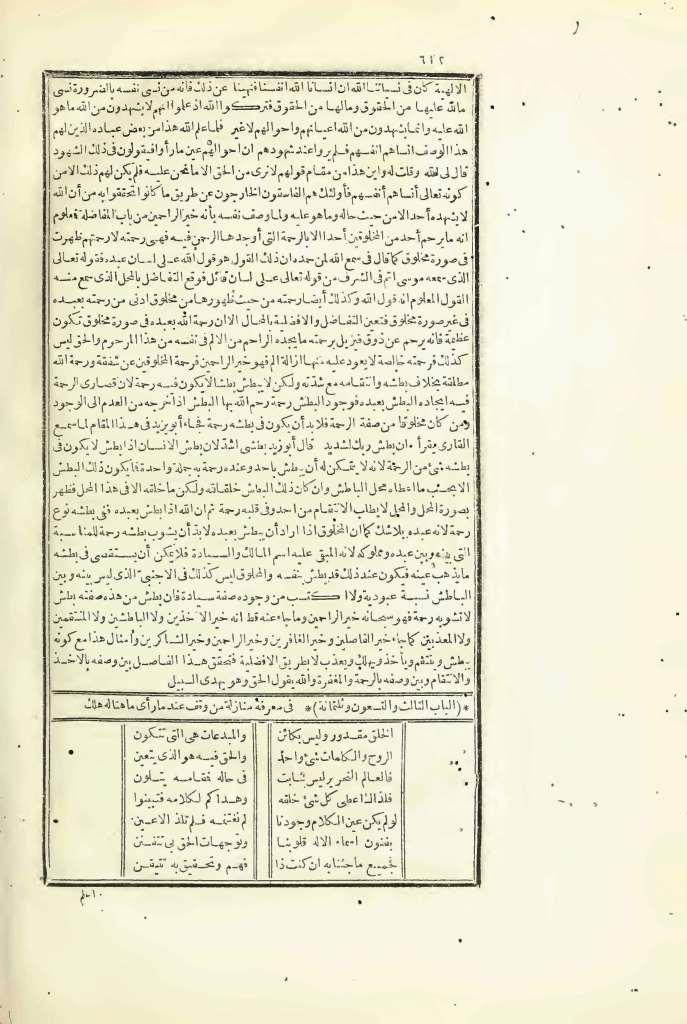 ٦١٢
الالهية كان فى نسياننا الله ان أنسانا الله أنفسنا فنهينا عن ذلك فانه من نسى نفسه بالضرورة نسى
مالله عليها من الحقوق ومالها من الحقوق فتركوا الله اذ علموا انهم لا يشهدون من الله ما هو
الله عليه وانما يشهدون من الله أعيانهم وأحوالهم لاغير فلما علم الله هذا من بعض عباده الذين لهم
هذا الوصف أنساهم أنفسهم فلم يروا عند شهودهم ان أحوالهم عين مارأوا فيقولون فى ذلك الشهود
قال لى الله وقلت له وأين هذا من مقام قولهم لا نرى من الحق الا ما نحن عليه فلم يكن لهم ذلك الا من
كونه تعالى أنساهم أنفسهم فأولئك هم الفاسقون الخارجون عن طريق ما كانوا تحققوا به من أن الله
لا يشهده أحد الا من حيث حاله وما هو عليه ولما وصف نفسه بأنه خير الراحمين من باب المفاضلة فمعلوم
انه ما يرحم أحد من المخلوقين أحدا الا بالرحمة التى أوجدها الرحمن فيه فهى رحمته لا رحمتهم ظهرت
فى صورة مخلوق كما قال فى سمع الله لمن حمده ان ذلك القول هو قول الله على لسان عبده فقوله تعالى
الذى سمعه موسى أتم فى الشرف من قوله تعالى على لسان قائل فوقع التفاضل بالمحل الذى سمع منه
القول المعلوم انه قول الله وكذلك أيضا رحمته من حيث ظهورها من مخلوق أدنى من رحمته بعبده
فى غير صورة مخلوق فتعين التفاضل والافضلية بالمحال الا ان رحمة الله بعبده فى صورة مخلوق تكون
عظيمة فانه يرحم عن ذوق فيزيل برحمته ما يجده الراحم من الالم فى نفسه من هذا المرحوم والحق ليس
كذلك فرحمته خالصة لا يعود عليه منها ازالة ألم فهو خير الراحمين فرحمة المخلوقين عن شفقة ورحمة الله
مطلقة بخلاف بطشه وانتقامه مع شدته ولكن لا يبطش بطشا لا يكون فيه رحمة لان قصارى الرحمة
فيه ايجاده البطش بعبده فوجود البطش رحمة رحم الله بها البطش اذ أخرجه من العدم الى الوجود
ومن كان مخلوقا من صفة الرحمة فلا بد أن يكون فى بطشه رحمة فجاء أبو يزيد فى هذا المقام لما سمع
القارى يقرأ ان بطش ربك لشديد قال أبو يزيد بطشى أشد لان بطش الانسان اذا بطش لا يكون فى
بطشه شئ من الرحمة لانه لا يتمكن له أن يبطش بأحد وعنده رحمة به جملة واحدة فما يكون ذلك البطش
الا بحسب ما أعطاه محل الباطش وان كان ذلك البطش خلقا لله ولكن ما خلقه الا فى هذا المحل فظهر
بصورة المحل والمحل لا يطلب الانتقام من أحد وفى قلبه رحمة ثم ان الله اذا بطش بعبده ففى بطشه نوع
رحمة لانه عبده بلا شك كما ان المخلوق اذا أراد أن يبطش بعبده لا بد أن يشوب بطشه رحمة للمناسبة
التى بينه وبين عبده ومملوكه لانه المبقى عليه اسم المالك والسيادة فلا يمكن أن يستقصى فى بطشه
ما يذهب عينه فيكون عند ذلك قد بطش بنفسه والمخلوق ليس كذلك فى الاجنبى الذى ليس بينه وبين
الباطش نسبة عبودية ولا اكتسب من وجوده صفة سيادة فان بطش من هذه صفته بطش
لا تشوبه رحمة فهو سبحانه خير الراحمين وما جاء عنه قط انه خير الآخذين ولا الباطشين ولا المنتقمين
ولا المعذبين كما جاء خير الفاصلين وخير الغافرين وخير الراحمين وخير الشاكرين وأمثال هذا مع كونه
يبطش وينتقم ويأخذ ويهلك ويعذب لا بطريق الافضلية فتحقق هذا الفاصل بين وصفه بالاخذ
والانتقام وبين وصفه بالرحمة والمغفرة والله يقول الحق وهو يهدى السبيل
*(الباب الثالث والتسعون وثلثمائة)* فى معرفة منازلة من وقف عند ما رأى ما هناله هلك
الخلق مقدور وليس بكائن والمبدعات هى التى تتكون
الروح والكلمات شئ واحد والحق فيه هو الذى يتعين
فالعالم النحرير ليس بثابت فى حاله فمقامه يتلون
فلذا أعطى كل شئ خلقه وهداكم لكلامه فتبينوا
لو لم يكن عين الكلام وجودنا لم نغتنمه فلم تلذ الاعين
بفنون أسماء الاله قلوبنا وتوجهات الحق بى تتفنن
فجميع ما جئنا به ان كنت ذا فهم وتحقيق به تتيقن